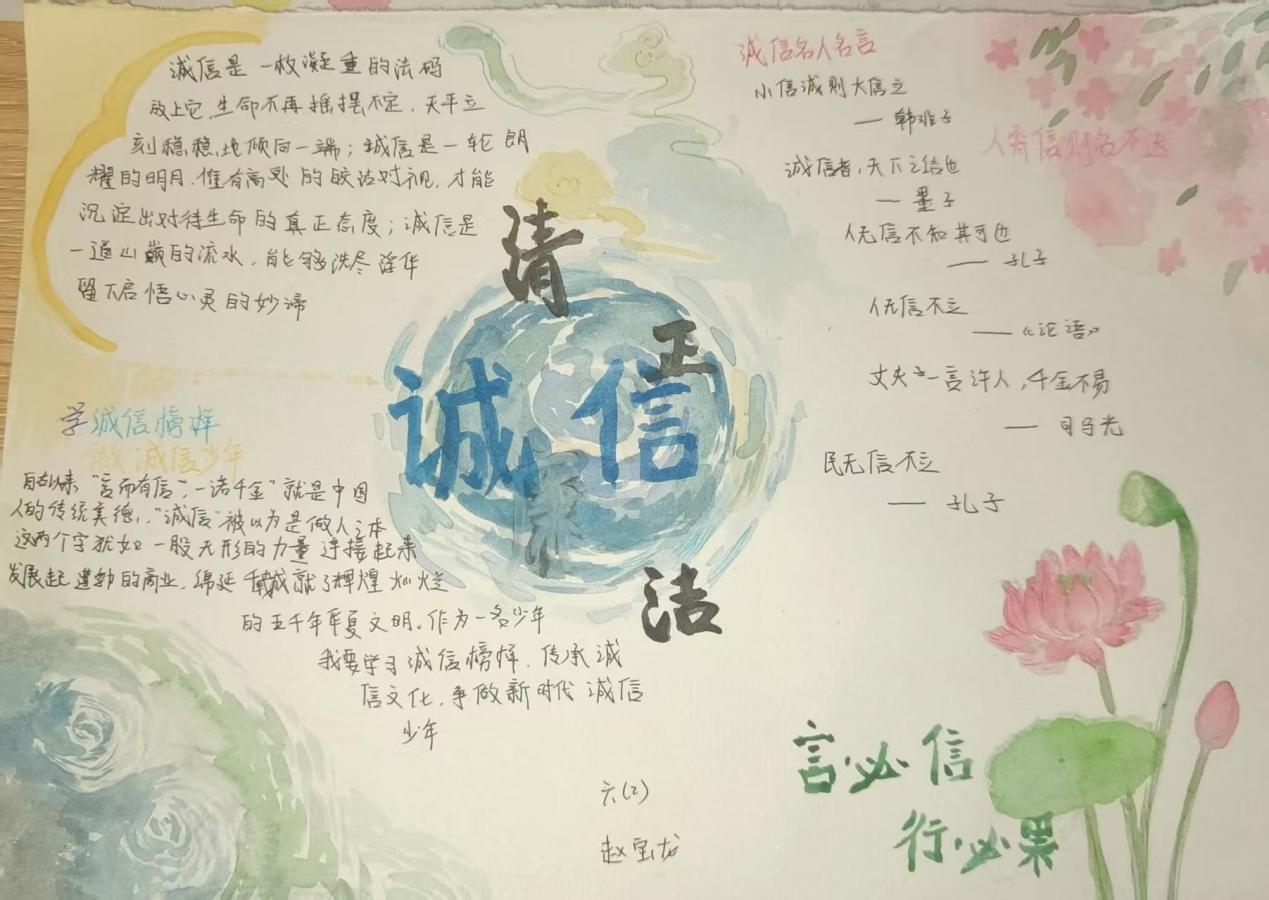 诚信是一枚凝重的法码
放上它,生命不再摇摆不定,天平立
刻稳稳地倾向一端;诚信是一轮朗
耀的明月,惟有高处的皎洁对视,才能
沉淀出对待生命的真正态度;诚信是
一道山巅的流水,能够洗尽浮华
留下启悟心灵的妙谛
清
正
诚信
洁
学诚信榜样
做诚信少年
自古以来“言而有信”,“一诺千金”就是中国
人的传统美德,“诚信”被以为是做人之本
这两个字犹如一股无形的力量连接起来
发展起遗的商业,绵延千载成就了辉煌灿烂
的五千年华夏文明。作为一名少年
我要学习诚信榜样,传承诚
信文化,争做新时代诚信
少年
六(2)
诚信名人名言
小信诚则大信立
——韩非子
诚信者,天下之结也
——墨子
人无信不知其可也
——孔子
人无信不立
——《论语》
丈夫一言许人,千金不易
——司马光
民无信不立
——孔子
人有信则名不
言必信
行必果